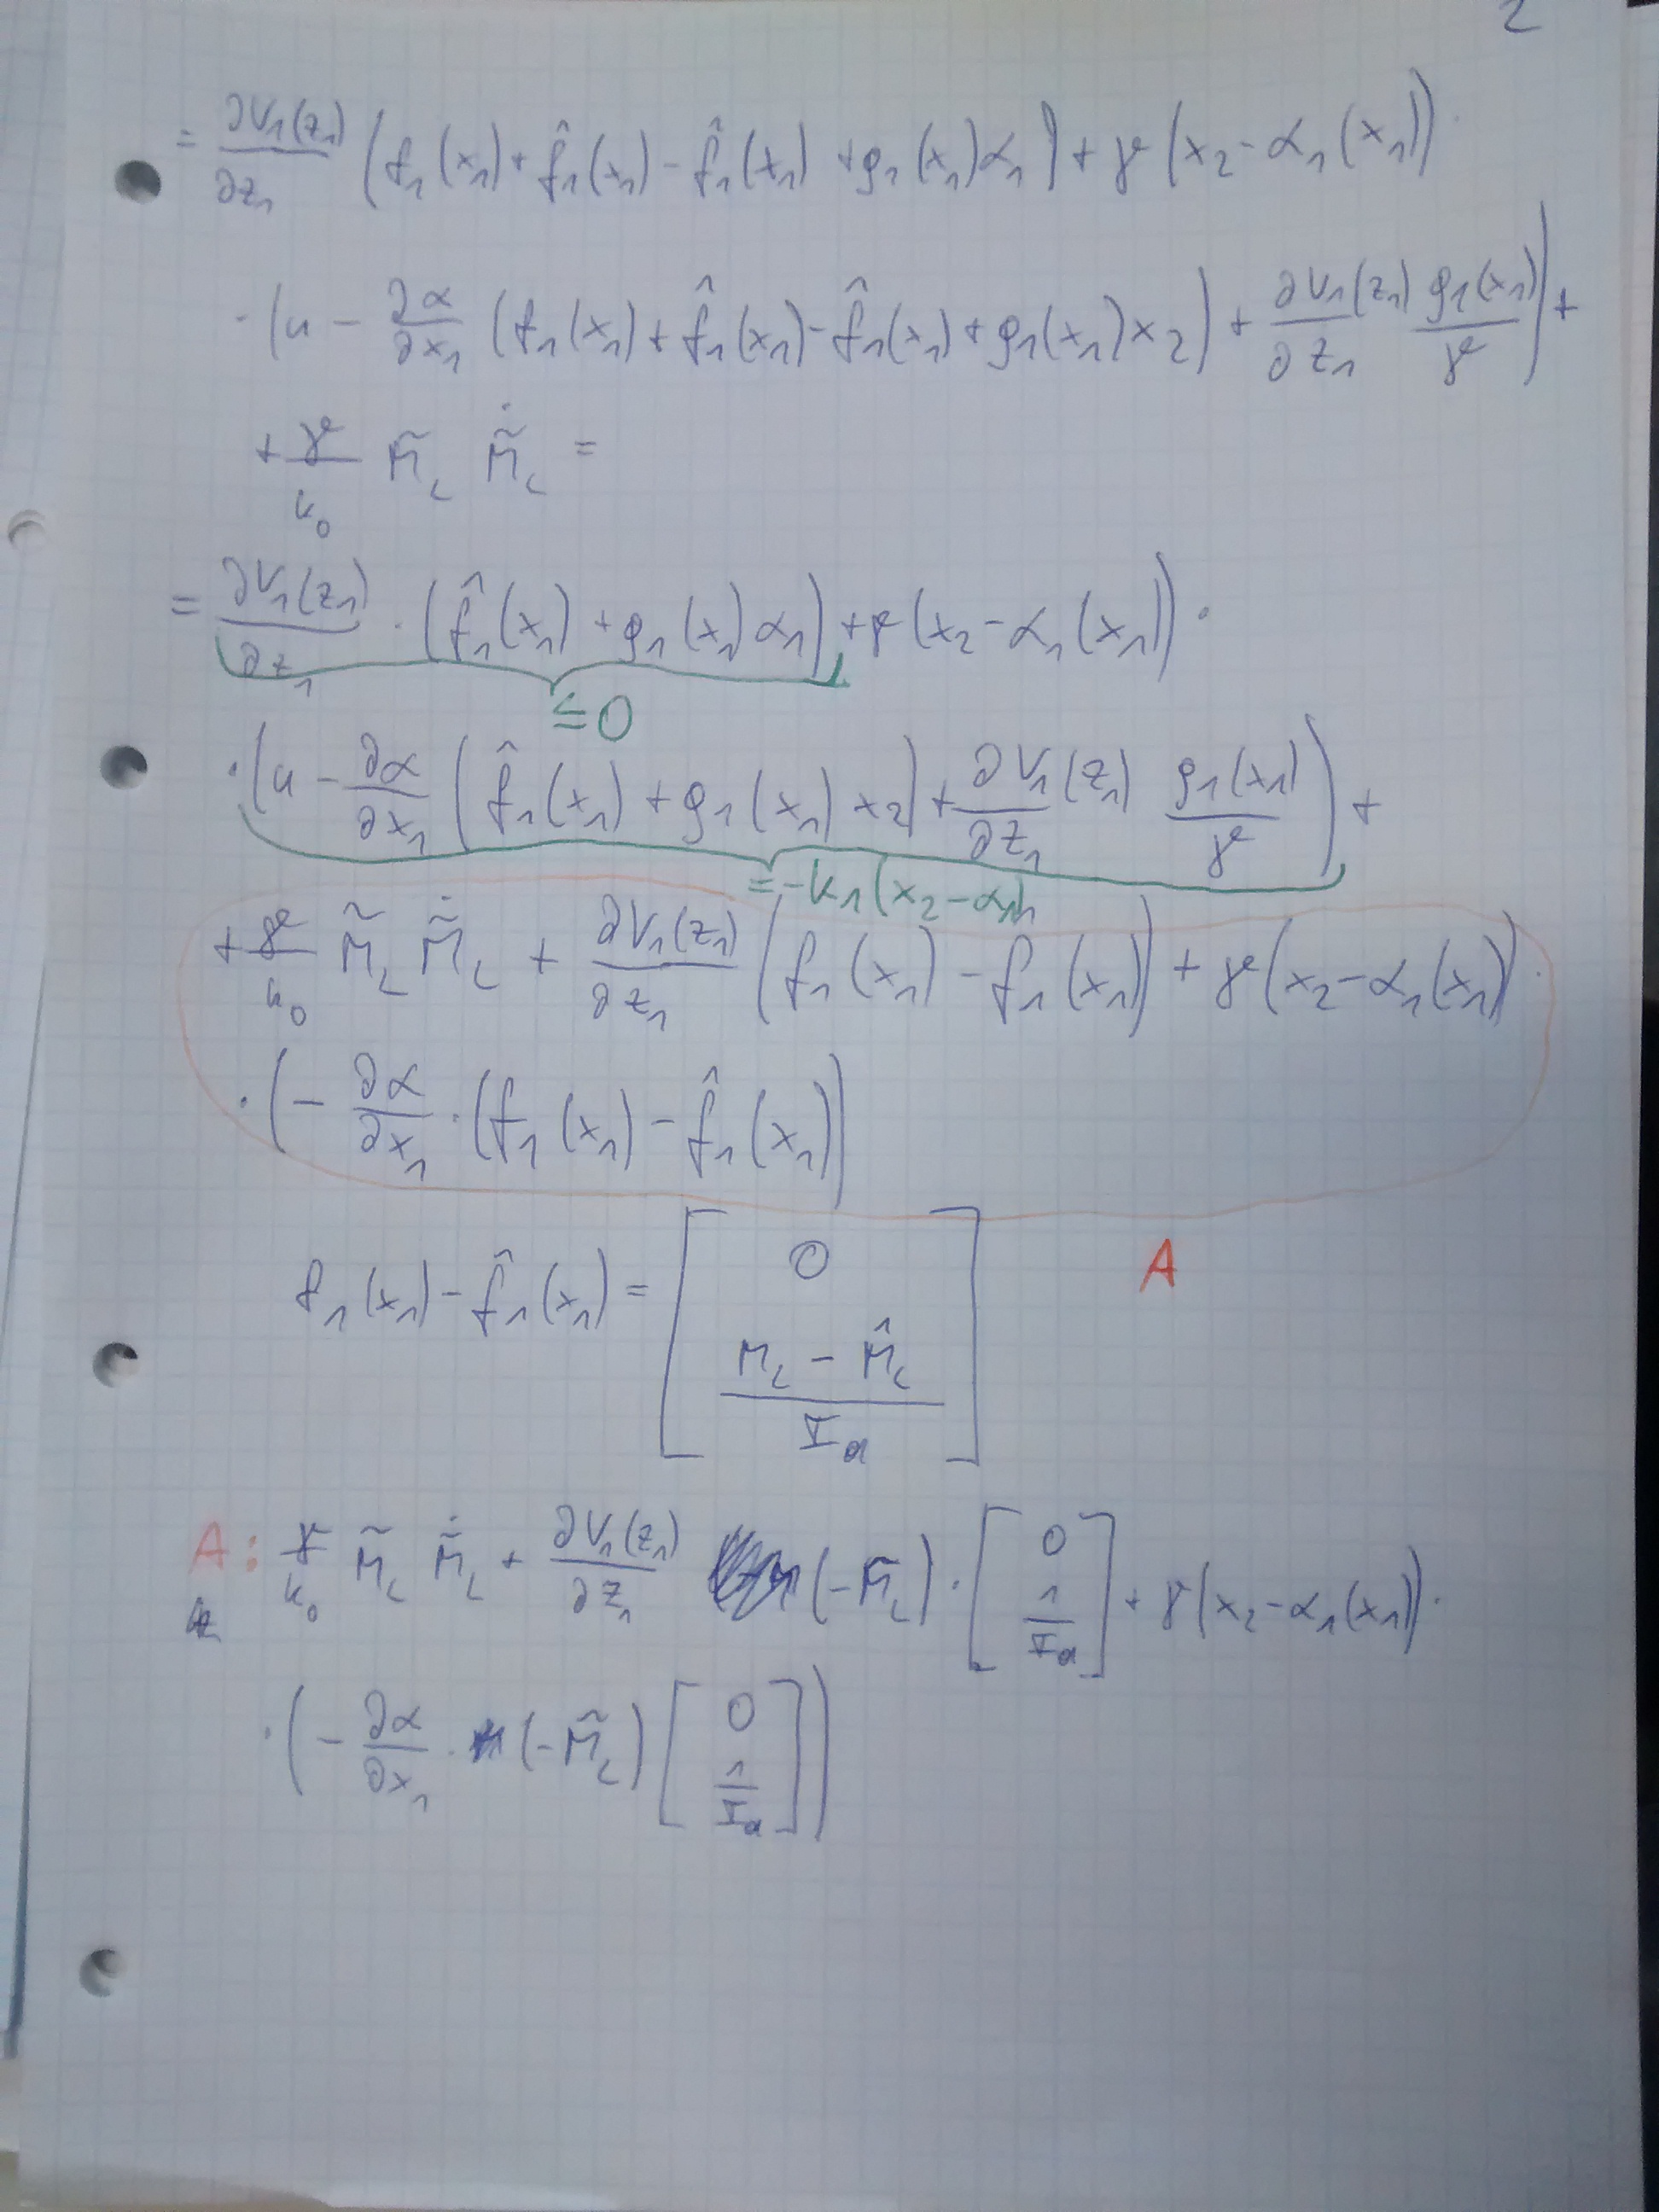 2
= ∂V₁(z₁)/∂z₁ (f₁(x₁) + f̂₁(x₁) - f̂₁(x₁) + g₁(x₁)α₁) + γ(x₂ - α₁(x₁)) ·
· (u - ∂α/∂x₁ (f₁(x₁) + f̂₁(x₁) - f̂₁(x₁) + g₁(x₁)x₂) + ∂V₁(z₁)/∂z₁ g₁(x₁)/γ) +
+ γ/k₀ M̃_L M̃̇_L =
= ∂V₁(z₁)/∂z₁ · (f̂₁(x₁) + g₁(x₁)α₁) + γ(x₂ - α₁(x₁)) ·
≤ 0
· (u - ∂α/∂x₁ (f̂₁(x₁) + g₁(x₁)x₂) + ∂V₁(z₁)/∂z₁ g₁(x₁)/γ) +
= -k₁(x₂ - α₁)
+ γ/k₀ M̃_L M̃̇_L + ∂V₁(z₁)/∂z₁ (f₁(x₁) - f₁(x₁)) + γ(x₂ - α₁(x₁)) ·
· (- ∂α/∂x₁ · (f₁(x₁) - f̂₁(x₁))
f₁(x₁) - f̂₁(x₁) = [0; (M_L - M̂_L)/I_a] A
A: γ/k₀ M̃_L M̃̇_L + ∂V₁(z₁)/∂z₁ (-M̃_L) · [0; 1/I_a] + γ(x₂ - α₁(x₁)) ·
· (- ∂α/∂x₁ · (-M̃_L) [0; 1/I_a])